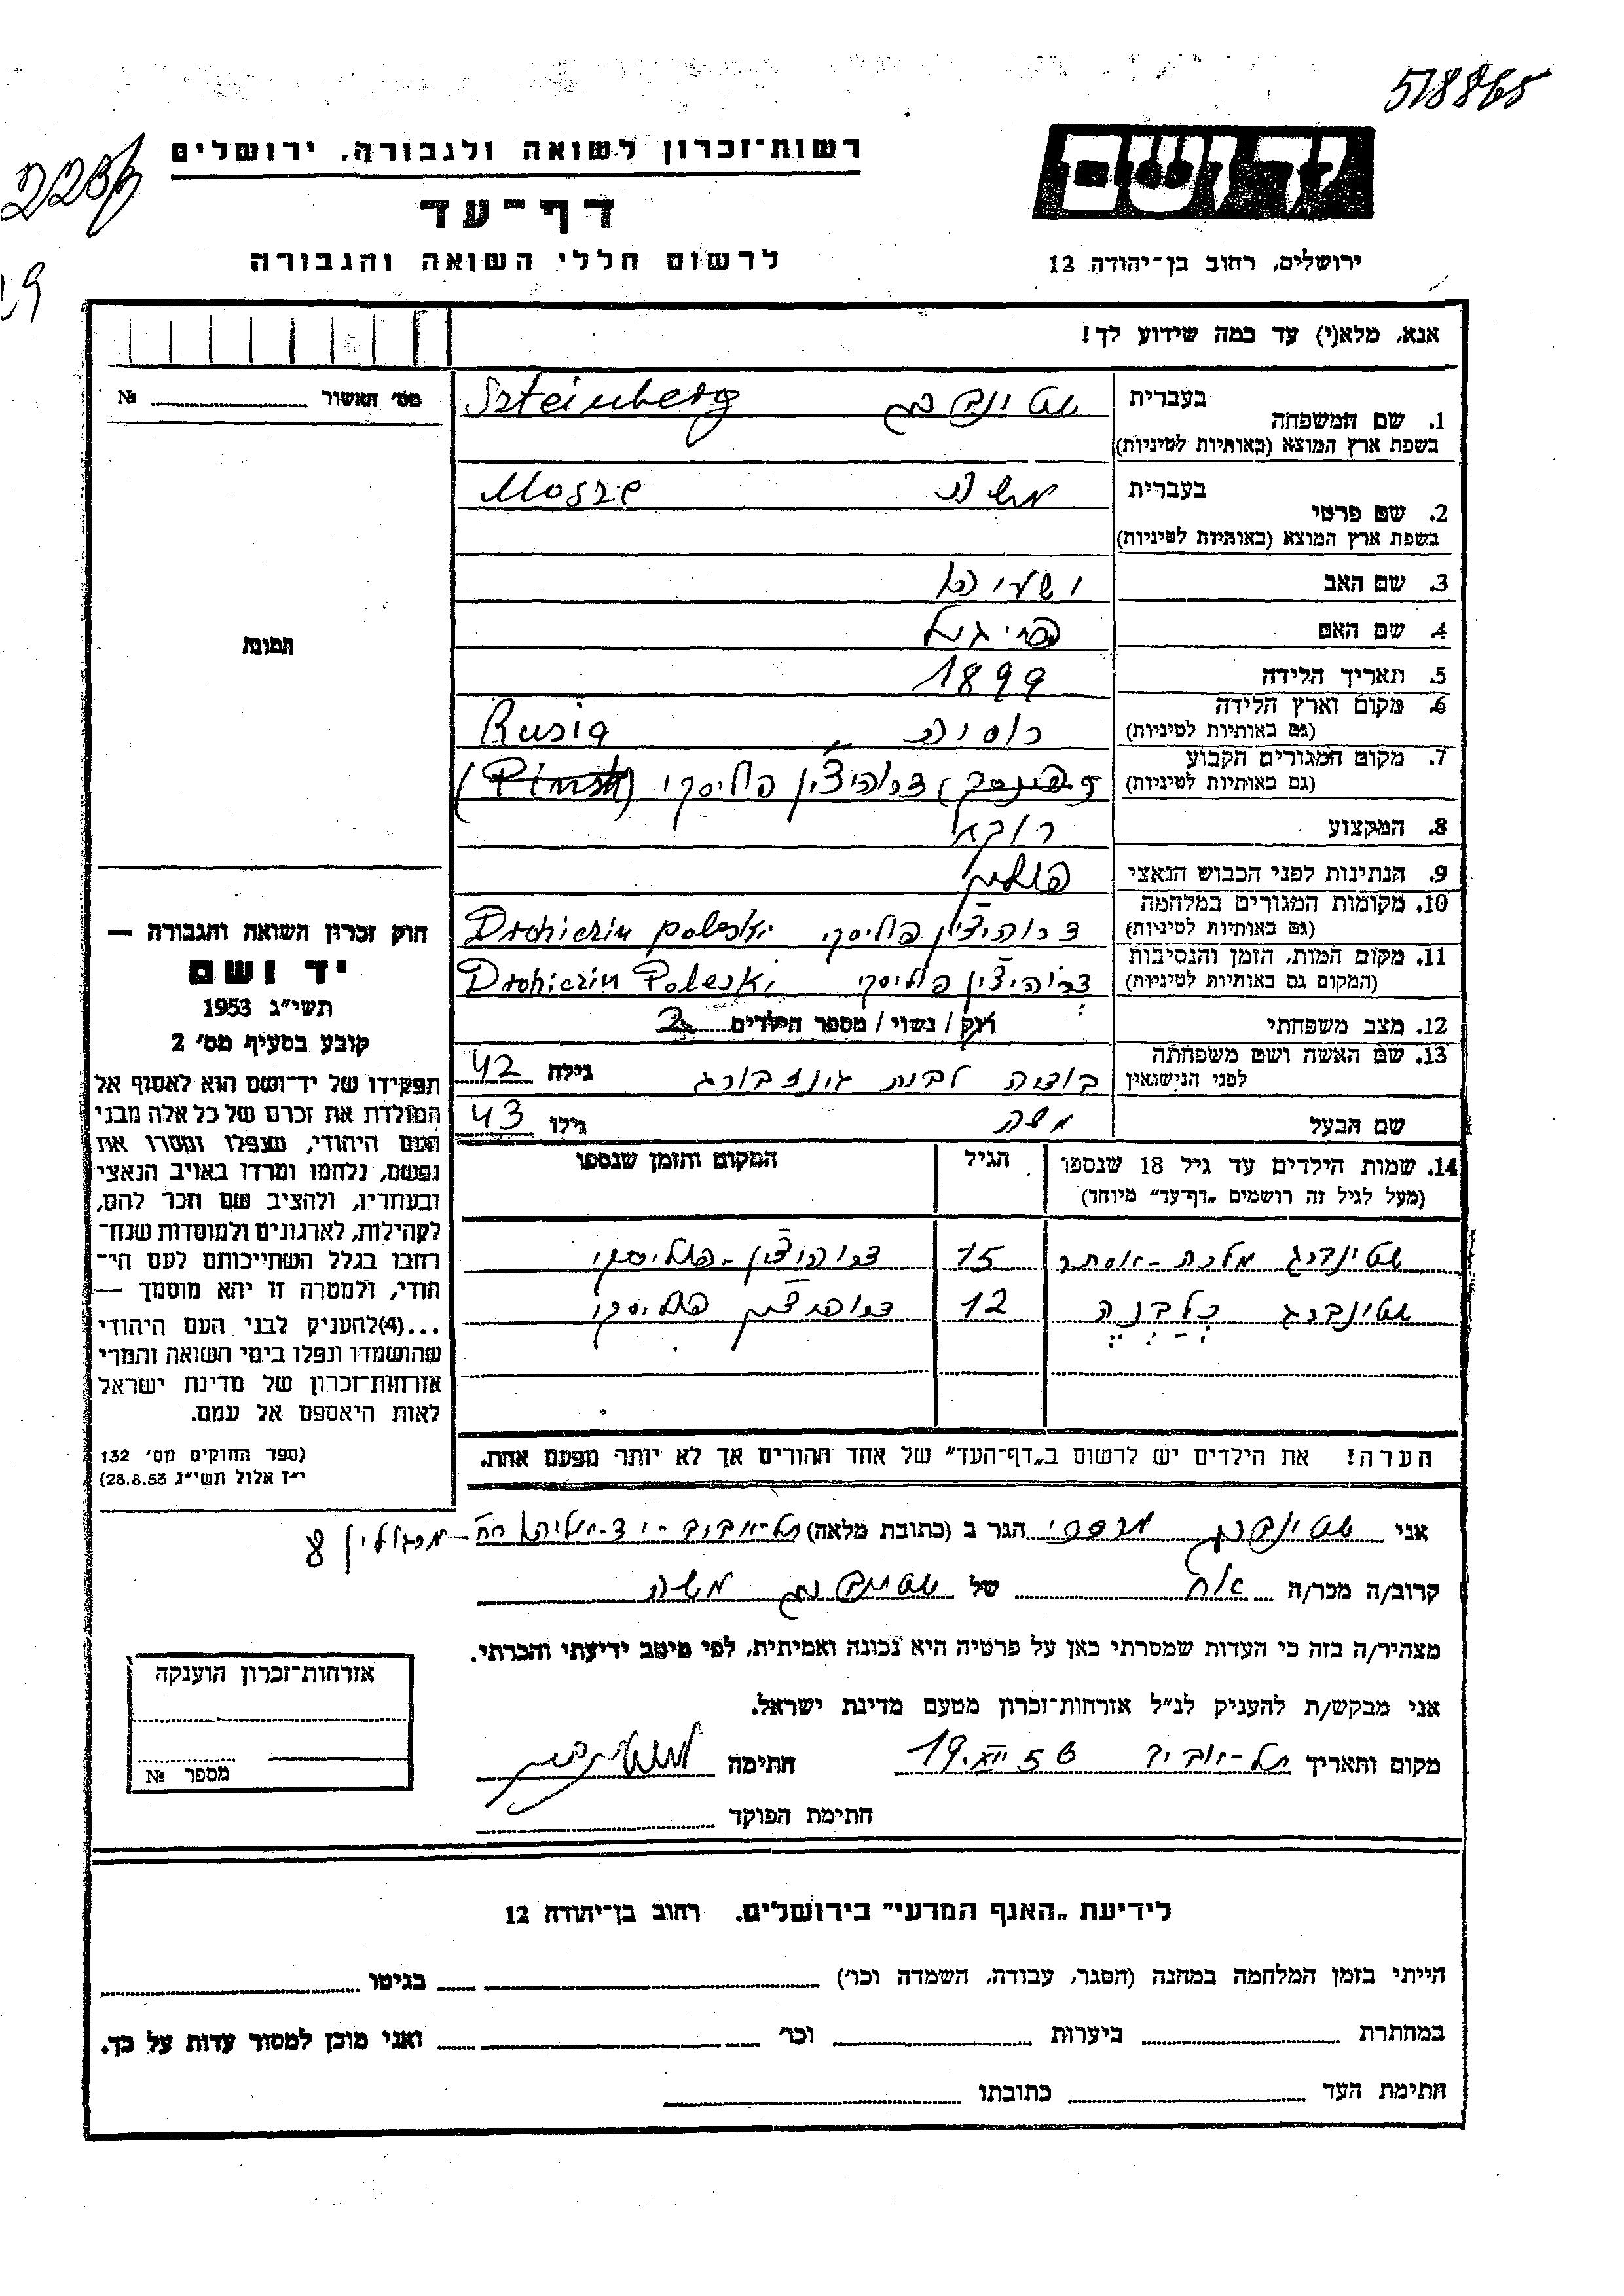 518865
רשות־זכרון לשואה ולגבורה, ירושלים
דף־עד
לרשום חללי השואה והגבורה
יד ושם
ירושלים, רחוב בן־יהודה 12
אנא, מלא(י) עד כמה שידוע לך!
מס' האשור № 
1. שם המשפחה
בעברית שטינברג Szteinberg
בשפת ארץ המוצא (באותיות לטיניות)
2. שם פרטי
בעברית משה Mosze
בשפת ארץ המוצא (באותיות לטיניות)
3. שם האב ישעיהו
4. שם האם פייגל
5. תאריך הלידה 1899
6. מקום וארץ הלידה רוסיה Rusia
(גם באותיות לטיניות)
7. מקום המגורים הקבוע דרוהיצ'ין פוליסקי (Pinsk)
(גם באותיות לטיניות)
8. המקצוע רוכל
9. הנתינות לפני הכבוש הנאצי פולנית
10. מקומות המגורים במלחמה דרוהיצ'ין פוליסקי Drohiczin Poleski
(גם באותיות לטיניות)
11. מקום המות, הזמן והנסיבות דרוהיצ'ין פוליסקי Drohiczin Poleski
(המקום גם באותיות לטיניות)
12. מצב משפחתי רוק / נשוי / מספר הילדים 2
13. שם האשה ושם משפחתה לבית גינזבורג גילה 42
לפני הנישואין
שם הבעל משה גילו 43
14. שמות הילדים עד גיל 18 שנספו הגיל המקום והזמן שנספו
(מעל לגיל זה רושמים „דף־עד" מיוחד)
שטינברג מלכה-אסתר 15 דרוהיצ'ין-פוליסקי
שטינברג 12 דרוהיצ'ין פוליסקי
הערה! את הילדים יש לרשום ב„דף־העד" של אחד ההורים אך לא יותר מפעם אחת.
תמונה
חוק זכרון השואה והגבורה —
יד ושם
תשי"ג 1953
קובע בסעיף מס' 2
תפקידו של יד־ושם הוא לאסוף אל
המולדת את זכרם של כל אלה מבני
העם היהודי, שנפלו ומסרו את
נפשם, נלחמו ומרדו באויב הנאצי
ובעוזריו, ולהציב שם וזכר להם,
לקהילות, לארגונים ולמוסדות שנח־
רבו בגלל השתייכותם לעם הי־
הודי, ולמטרה זו יהא מוסמך —
...(4)להעניק לבני העם היהודי
שהושמדו ונפלו בימי השואה והמרי
אזרחות־זכרון של מדינת ישראל
לאות היאספם אל עמם.
(ספר החוקים מס' 132
י"ז אלול תשי"ג 28.8.53)
אני שטינברג הגר ב (כתובת מלאה) תל-אביב - יד-אליהו רח - מרגולין 8
קרוב/ה מכר/ה אח של שטינברג משה
מצהיר/ה בזה כי העדות שמסרתי כאן על פרטיה היא נכונה ואמיתית, לפי מיטב ידיעתי והכרתי.
אני מבקש/ת להעניק לנ"ל אזרחות־זכרון מטעם מדינת ישראל.
מקום ותאריך תל-אביב חתימה
חתימת הפוקד
אזרחות־זכרון הוענקה
מספר №
לידיעת „האגף המדעי" בירושלים, רחוב בן־יהודה 12
הייתי בזמן המלחמה במחנה (הסגר, עבודה, השמדה וכו') בגיטו
במחתרת ביערות וכו' ואני מוכן למסור עדות על כך.
חתימת העד כתובתו